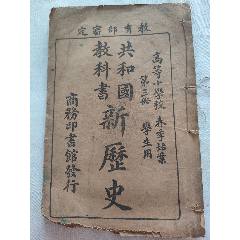 教育部審定
高等小學校 春季始業
第三冊 學生用
共和國
教科書
新歷史
商務印書館發行